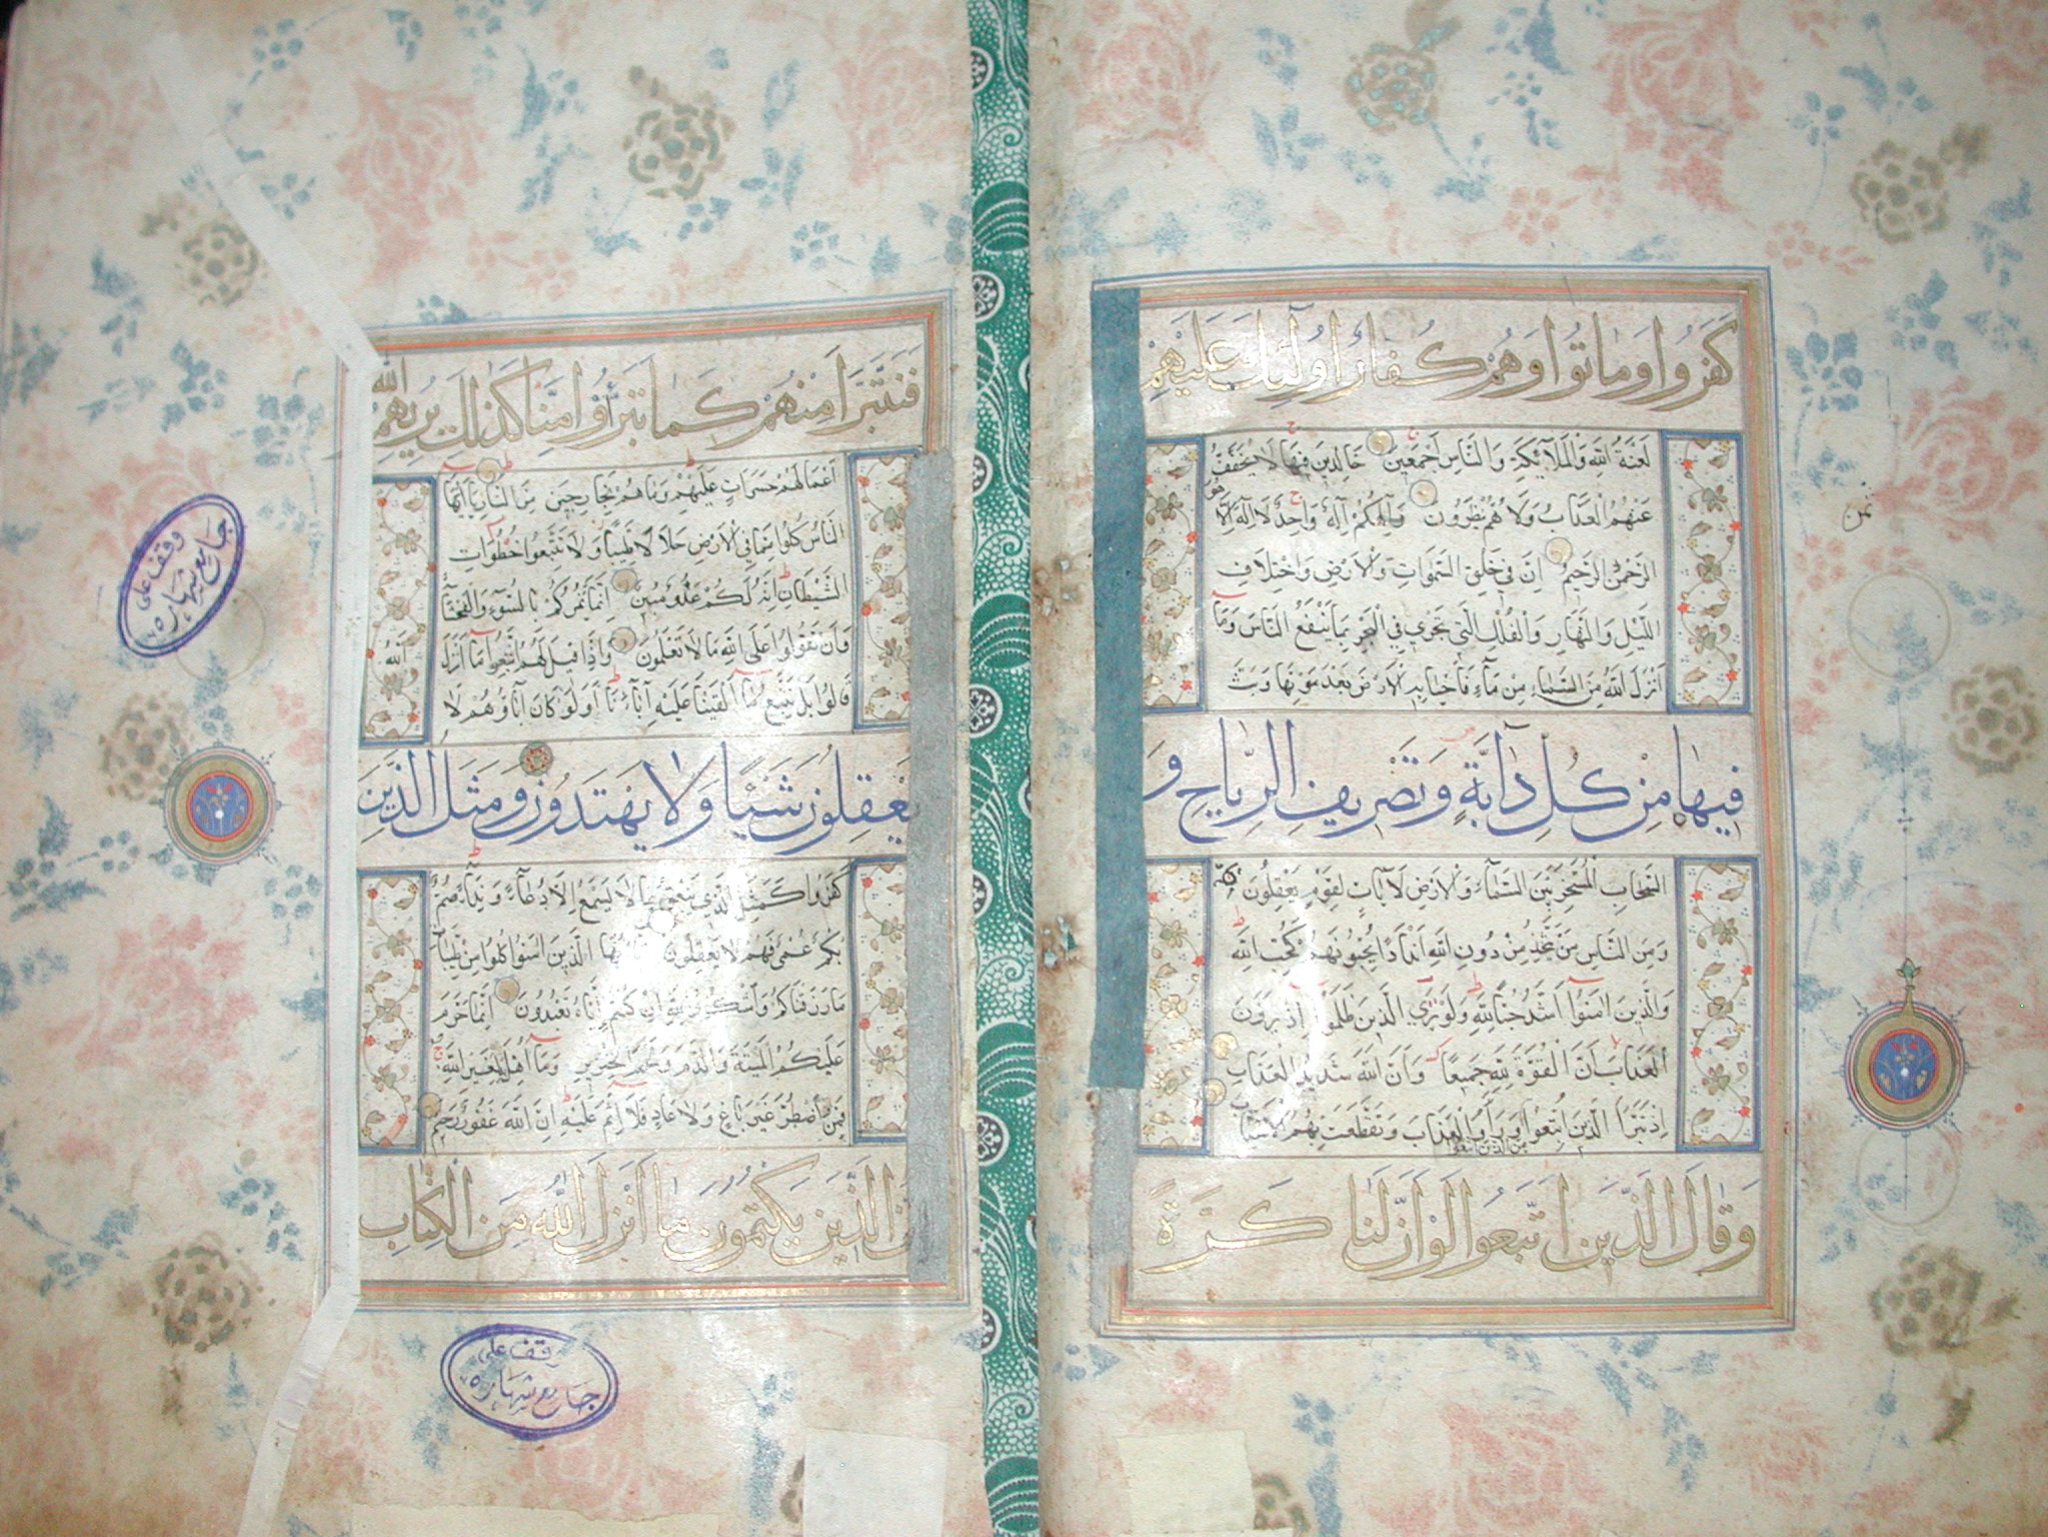 كَفَرُوا وَمَاتُوا وَهُمْ كُفَّارٌ اُولٰۤئِكَ عَلَيْهِمْ
لَعْنَةُ اللّٰهِ وَالْمَلَآئِكَةِ وَالنَّاسِ اَجْمَعِينَ خَالِدِينَ فِيهَا لَا يُخَفَّفُ
عَنْهُمُ الْعَذَابُ وَلَا هُمْ يُنْظَرُونَ وَاِلٰهُكُمْ اِلٰهٌ وَاحِدٌ لَا اِلٰهَ اِلَّا هُوَ
الرَّحْمٰنُ الرَّحِيمُ اِنَّ فِي خَلْقِ السَّمٰوَاتِ وَالْاَرْضِ وَاخْتِلَافِ
اللَّيْلِ وَالنَّهَارِ وَالْفُلْكِ الَّتِي تَجْرِي فِي الْبَحْرِ بِمَا يَنْفَعُ النَّاسَ وَمَا
اَنْزَلَ اللّٰهُ مِنَ السَّمَاءِ مِنْ مَاءٍ فَاَحْيَا بِهِ الْاَرْضَ بَعْدَ مَوْتِهَا وَبَثَّ
فِيهَا مِنْ كُلِّ دَآبَّةٍ وَتَصْرِيفِ الرِّيَاحِ وَ
السَّحَابِ الْمُسَخَّرِ بَيْنَ السَّمَاءِ وَالْاَرْضِ لَاٰيَاتٍ لِقَوْمٍ يَعْقِلُونَ
وَمِنَ النَّاسِ مَنْ يَتَّخِذُ مِنْ دُونِ اللّٰهِ اَنْدَادًا يُحِبُّونَهُمْ كَحُبِّ اللّٰهِ
وَالَّذِينَ اٰمَنُوا اَشَدُّ حُبًّا لِلّٰهِ وَلَوْ يَرَى الَّذِينَ ظَلَمُوا اِذْ يَرَوْنَ
الْعَذَابَ اَنَّ الْقُوَّةَ لِلّٰهِ جَمِيعًا وَاَنَّ اللّٰهَ شَدِيدُ الْعَذَابِ
اِذْ تَبَرَّاَ الَّذِينَ اتُّبِعُوا وَرَاَوُا الْعَذَابَ وَتَقَطَّعَتْ بِهِمُ الْاَسْبَابُ
مِنَ الَّذِينَ اتَّبَعُوا
وَقَالَ الَّذِينَ اتَّبَعُوا لَوْ اَنَّ لَنَا كَرَّةً
ثمن
فَنَتَبَرَّاَ مِنْهُمْ كَمَا تَبَرَّؤُا مِنَّا كَذٰلِكَ يُرِيهِمُ اللّٰهُ
اَعْمَالَهُمْ حَسَرَاتٍ عَلَيْهِمْ وَمَا هُمْ بِخَارِجِينَ مِنَ النَّارِ يَا اَيُّهَا
النَّاسُ كُلُوا مِمَّا فِي الْاَرْضِ حَلَالًا طَيِّبًا وَلَا تَتَّبِعُوا خُطُوَاتِ
الشَّيْطَانِ اِنَّهُ لَكُمْ عَدُوٌّ مُبِينٌ اِنَّمَا يَاْمُرُكُمْ بِالسُّوءِ وَالْفَحْشَاءِ
وَاَنْ تَقُولُوا عَلَى اللّٰهِ مَا لَا تَعْلَمُونَ وَاِذَا قِيلَ لَهُمُ اتَّبِعُوا مَا اَنْزَلَ اللّٰهُ
قَالُوا بَلْ نَتَّبِعُ مَا اَلْفَيْنَا عَلَيْهِ اٰبَاءَنَا اَوَلَوْ كَانَ اٰبَاؤُهُمْ لَا
يَعْقِلُونَ شَيْئًا وَلَا يَهْتَدُونَ وَمَثَلُ الَّذِينَ
كَفَرُوا كَمَثَلِ الَّذِي يَنْعِقُ بِمَا لَا يَسْمَعُ اِلَّا دُعَاءً وَنِدَاءً صُمٌّ
بُكْمٌ عُمْيٌ فَهُمْ لَا يَعْقِلُونَ يَا اَيُّهَا الَّذِينَ اٰمَنُوا كُلُوا مِنْ طَيِّبَاتِ
مَا رَزَقْنَاكُمْ وَاشْكُرُوا لِلّٰهِ اِنْ كُنْتُمْ اِيَّاهُ تَعْبُدُونَ اِنَّمَا حَرَّمَ
عَلَيْكُمُ الْمَيْتَةَ وَالدَّمَ وَلَحْمَ الْخِنْزِيرِ وَمَا اُهِلَّ بِهِ لِغَيْرِ اللّٰهِ
فَمَنِ اضْطُرَّ غَيْرَ بَاغٍ وَلَا عَادٍ فَلَا اِثْمَ عَلَيْهِ اِنَّ اللّٰهَ غَفُورٌ رَحِيمٌ
الَّذِينَ يَكْتُمُونَ مَا اَنْزَلَ اللّٰهُ مِنَ الْكِتَابِ
وقف على
جامع شهاره
وقف على
جامع شهاره